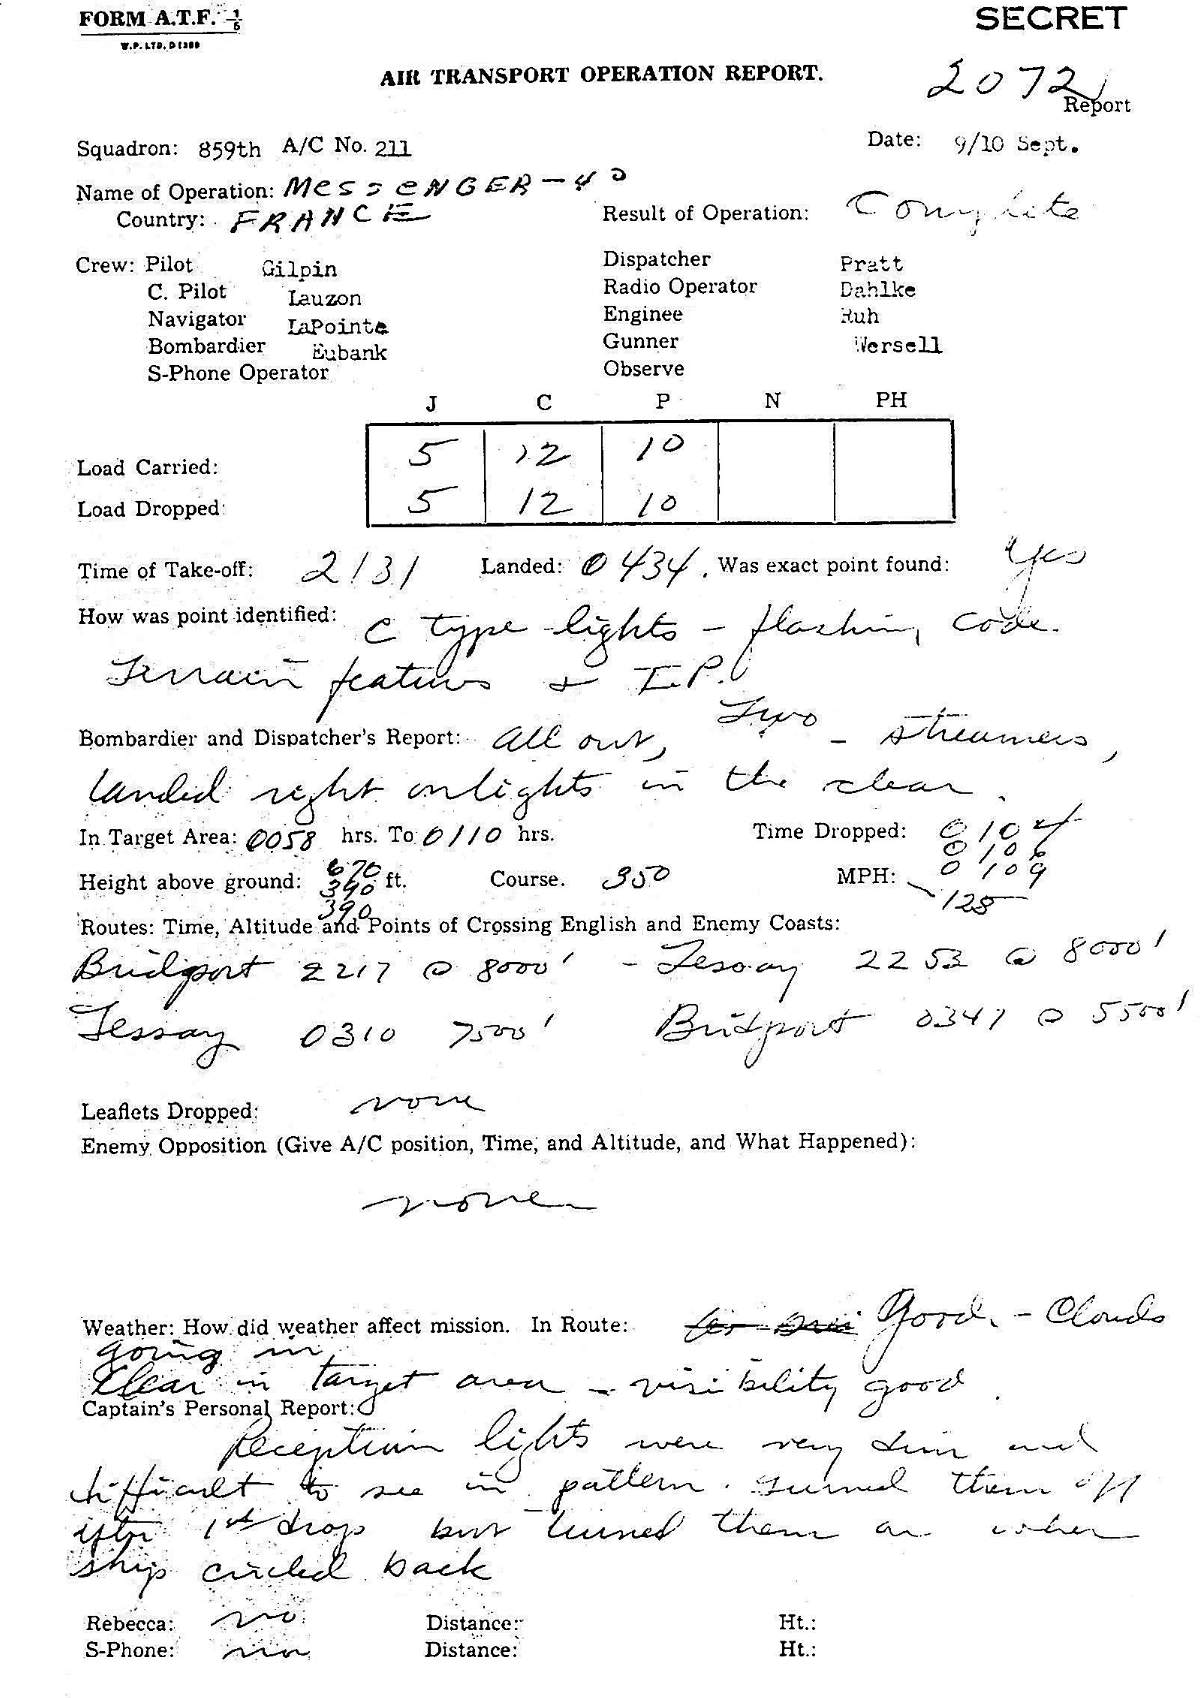 FORM A.T.F. 1/6
SECRET
W.P. LTD. D1389
AIR TRANSPORT OPERATION REPORT.
2072
Report
Squadron: 859th A/C No. 211 Date: 9/10 Sept.
Name of Operation: MesseNGER-40
Country: FRANCE Result of Operation: Complete
Crew: Pilot Gilpin Dispatcher Pratt
C. Pilot Lauzon Radio Operator Dahlke
Navigator LaPointe Enginee Ruh
Bombardier Eubank Gunner Wersell
S-Phone Operator Observe
J C P N PH
Load Carried: 5 12 10
Load Dropped: 5 12 10
Time of Take-off: 2131 Landed: 0434. Was exact point found: Yes
How was point identified: C type lights - flashing code.
Terrain features & I.P.
Bombardier and Dispatcher's Report: All out, Two - streamers,
landed right on lights in the clear.
In Target Area: 0058 hrs. To 0110 hrs. Time Dropped: 0104
0106
0109
Height above ground: 670 390 390 ft. Course. 350 MPH: 125
Routes: Time, Altitude and Points of Crossing English and Enemy Coasts:
Bridport 2217 @ 8000' - Lessay 2253 @ 8000'
Lessay 0310 7500' Bridport 0347 @ 5500'
Leaflets Dropped: none
Enemy Opposition (Give A/C position, Time, and Altitude, and What Happened):
none
Weather: How did weather affect mission. In Route: Good - Clouds
going in
Clear in target area - visibility good.
Captain's Personal Report:
Reception lights were very dim and
difficult to see in pattern. Turned them off
after 1st drop but turned them on when
ship circled back
Rebecca: no Distance: Ht.:
S-Phone: no Distance: Ht.: